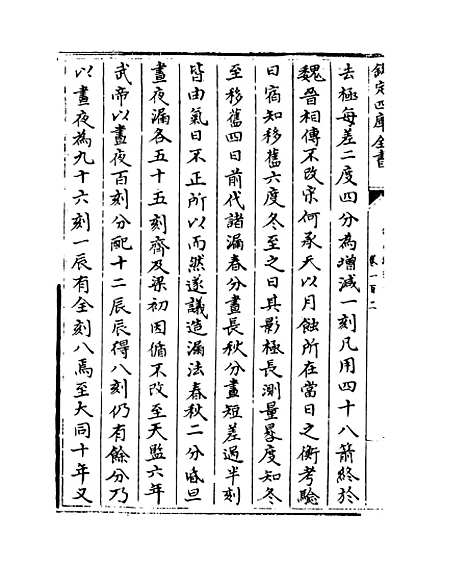 欽定四庫全書
卷一百二
去極每差二度四分為增減一刻凡用四十八箭終於
魏晉相傳不改宋何承天以月蝕所在當日之衡考驗
日宿知移舊六度冬至之日其影極長測量晷度知冬
至移舊四日前代諸漏春分晝長秋分晝短差過半刻
皆由氣日不正所以而然遂議造漏法春秋二分昏旦
晝夜漏各五十五刻齊及梁初因循不改至天監六年
武帝以晝夜百刻分配十二辰辰得八刻仍有餘分乃
以晝夜為九十六刻一辰有全刻八焉至大同十年又